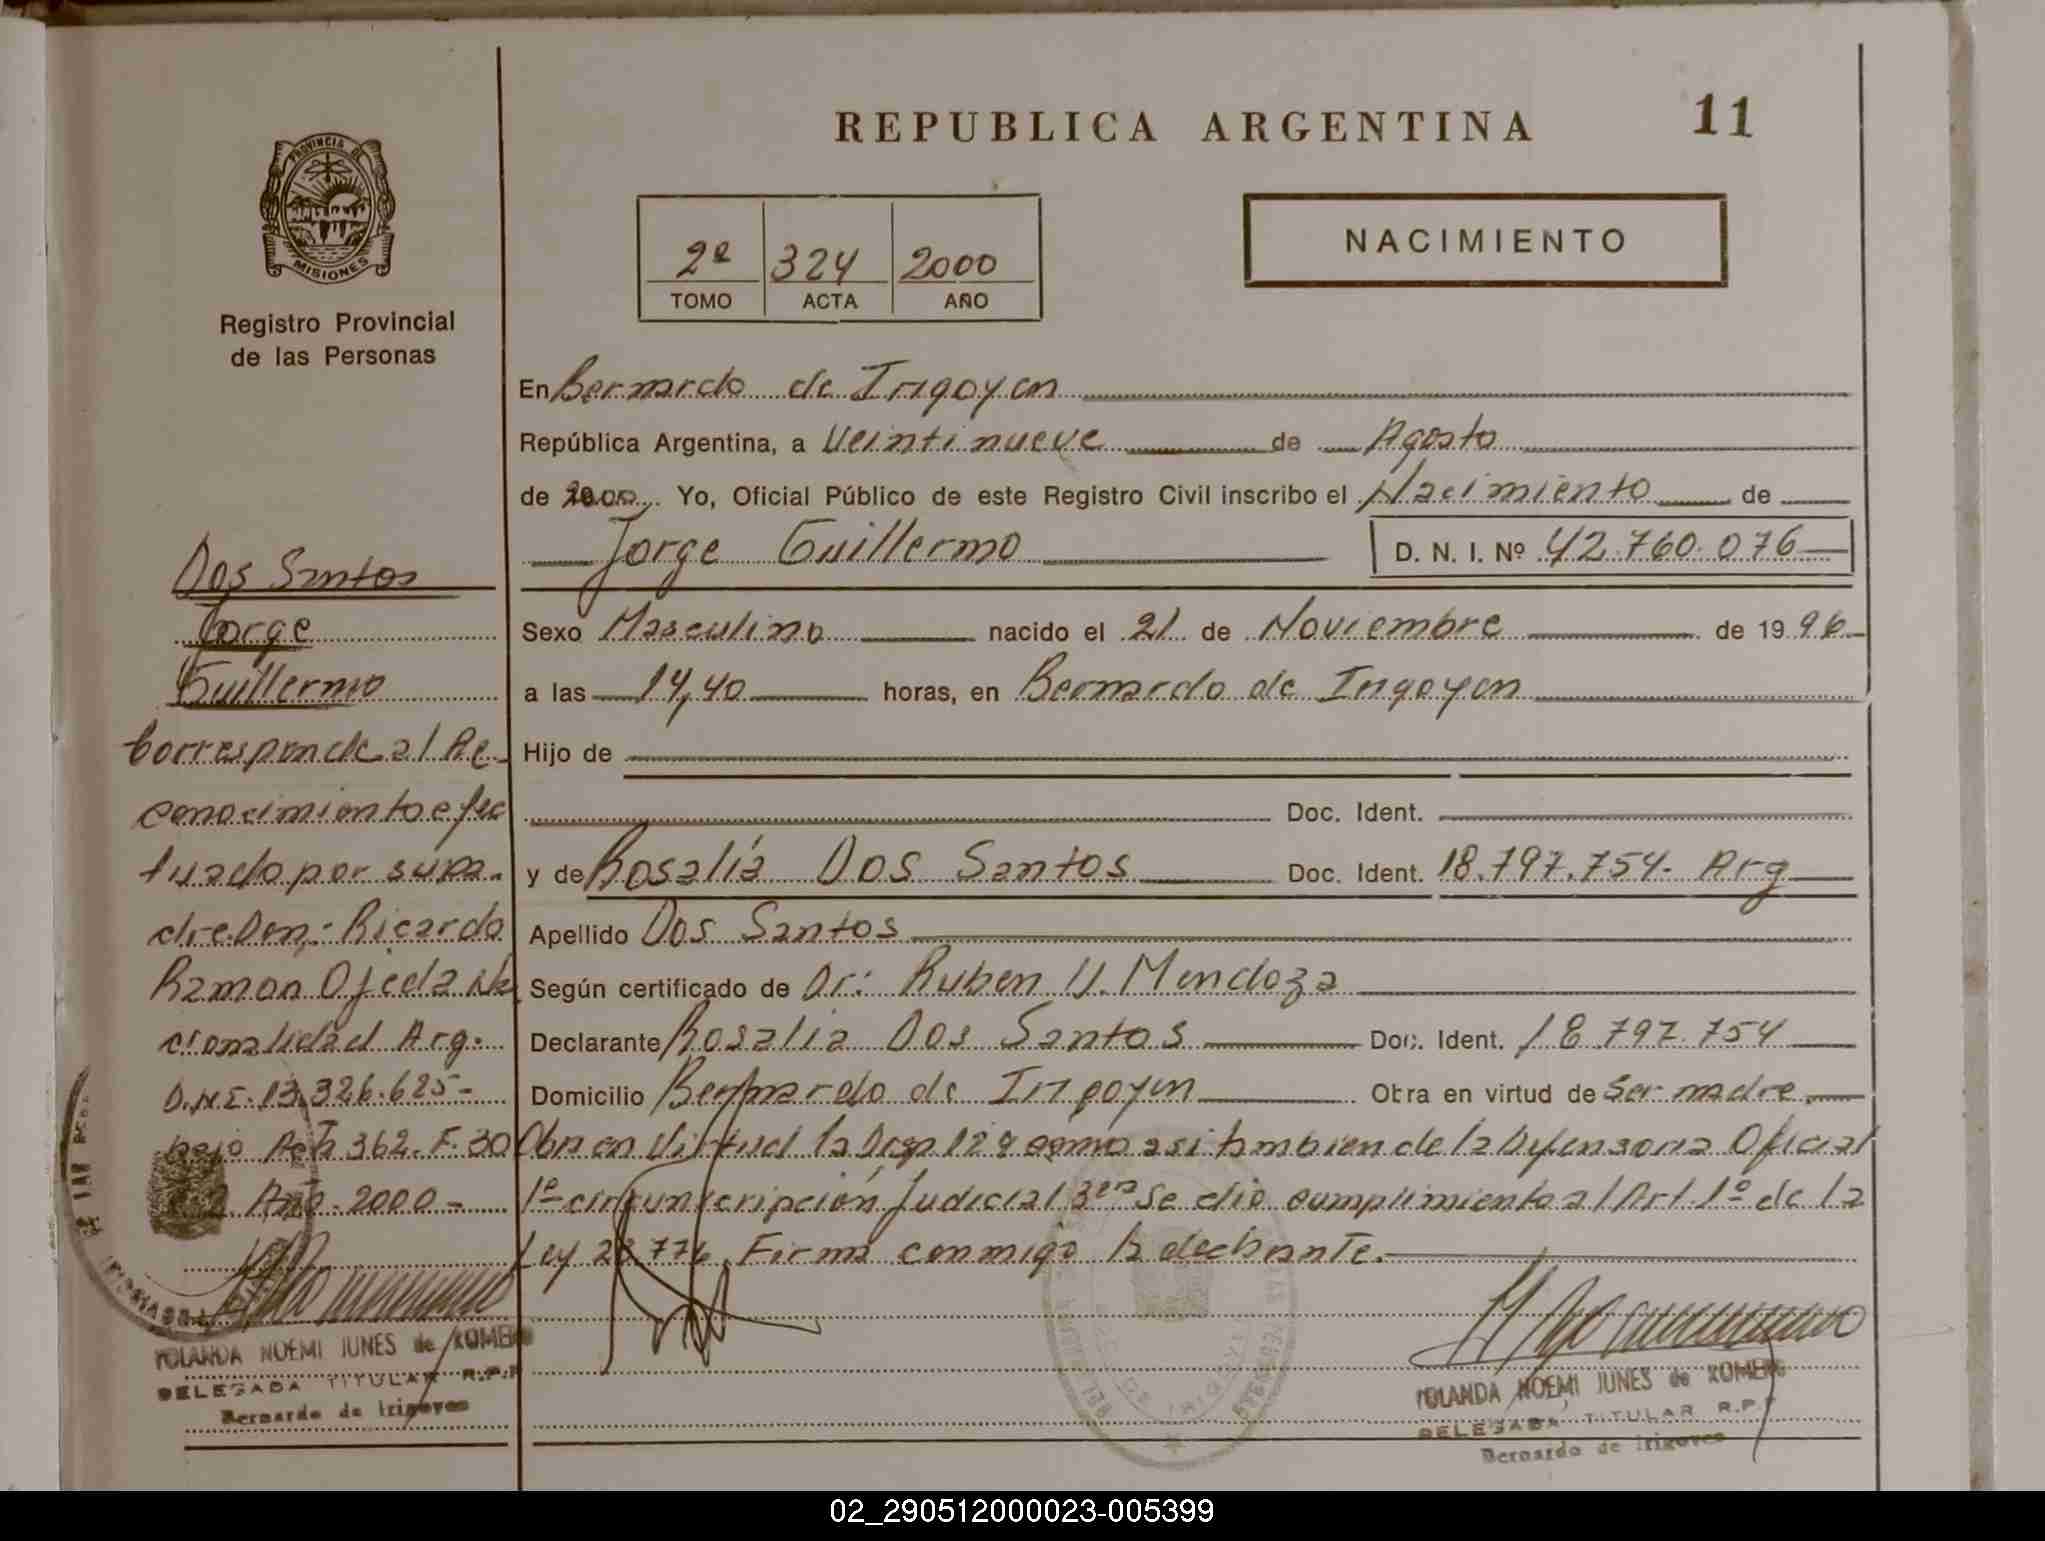 REPUBLICA ARGENTINA
11
PROVINCIA DE
MISIONES
Registro Provincial
de las Personas
2º 324 2000
TOMO ACTA AÑO
NACIMIENTO
En Bernardo de Irigoyen
República Argentina, a Veintinueve de Agosto
de 2000 Yo, Oficial Público de este Registro Civil inscribo el Nacimiento de
Jorge Guillermo D. N. I. Nº 42.760.076
Sexo Masculino nacido el 21 de Noviembre de 1996
a las 14,40 horas, en Bernardo de Irigoyen
Hijo de
Doc. Ident.
y de Rosalía Dos Santos Doc. Ident. 18.797.754. Arg
Apellido Dos Santos
Según certificado de Dr: Ruben V. Mendoza
Declarante Rosalia Dos Santos Doc. Ident. 18.797.754
Domicilio Bernardo de Irigoyen Obra en virtud de Ser madre.
Obra en Virtud la como asi tambien de la Defensoria Oficial
1º circunscripción Judicial 3era Se dio cumplimiento al Art. 1º de la
Ley Firma conmigo la declarante.
Dos Santos
Jorge
Guillermo
Corresponde al Re-
conocimiento efec
tuado por su pa-
dre Don: Ricardo
Ramon Ojeda Na
cionalidad Arg.
D.N.I. 13.326.625-
bajo Acta 362. F. 30
Año 2000-
YOLANDA NOEMI JUNES de ROMERO
DELEGADA TITULAR R.P.P
Bernardo de Irigoyen
YOLANDA NOEMI JUNES de ROMERO
DELEGADA TITULAR R.P.P
Bernardo de Irigoyen
02_290512000023-005399